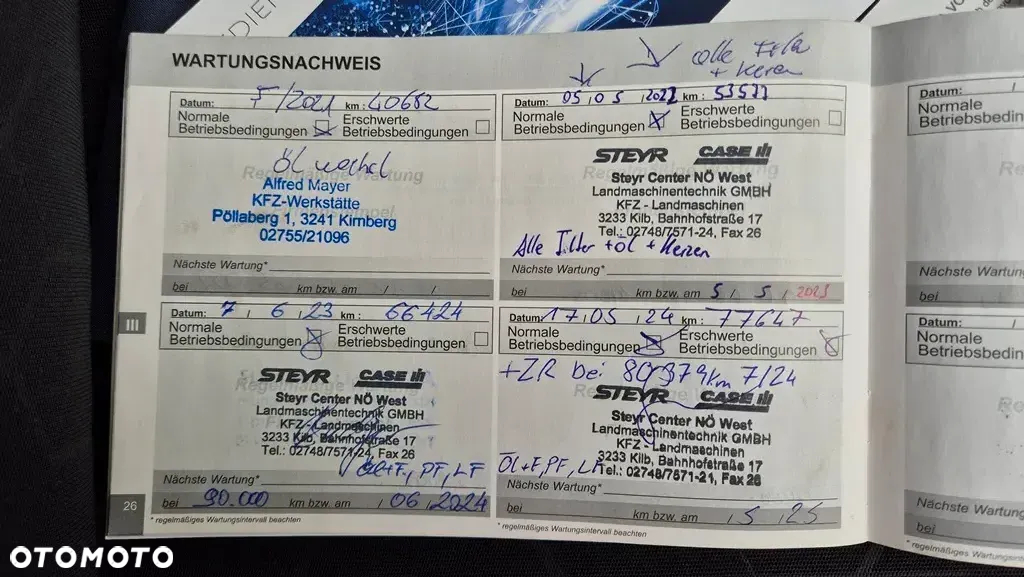 WARTUNGSNACHWEIS
alle
+ Kerzen
Datum: 7/2021 km: 40682
Normale
Betriebsbedingungen
Erschwerte
Betriebsbedingungen
Öl wechsel
Regelmäßige Wartung
Alfred Mayer
KFZ-Werkstätte
Pöllaberg 1, 3241 Kirnberg
02755/21096
Nächste Wartung*
bei km bzw. am / /
Datum: 05.05.2022 km: 53577
Normale
Betriebsbedingungen
Erschwerte
Betriebsbedingungen
STEYR CASE IH
Steyr Center NÖ West
Landmaschinentechnik GMBH
KFZ - Landmaschinen
3233 Kilb, Bahnhofstraße 17
Tel.: 02748/7571-24, Fax 26
Alle Filter + öl + Kerzen
Nächste Wartung*
bei km bzw. am 5 / 5 / 2023
Datum: 7 / 6 / 23 km: 66424
Normale
Betriebsbedingungen
Erschwerte
Betriebsbedingungen
STEYR CASE IH
Steyr Center NÖ West
Landmaschinentechnik GMBH
KFZ - Landmaschinen
3233 Kilb, Bahnhofstraße 17
Tel.: 02748/7571-24, Fax 26
Öl+F, PF, LF
Nächste Wartung*
bei 90.000 km bzw. am / 06 / 2024
* regelmäßiges Wartungsintervall beachten
Datum: 17.05.24 km: 77647
Normale
Betriebsbedingungen
Erschwerte
Betriebsbedingungen
+ZR bei 80979km 7/24
STEYR CASE IH
Steyr Center NÖ West
Landmaschinentechnik GMBH
KFZ - Landmaschinen
3233 Kilb, Bahnhofstraße 17
Tel.: 02748/7571-21, Fax 26
Öl+F, PF, LF
Nächste Wartung*
bei km bzw. am / 5 / 25
* regelmäßiges Wartungsintervall beachten
III
26
Datum:
Normale
Betriebsbedingun
Nächste Wartung
bei
Datum:
Normale
Betriebsbedingun
Nächste Wartung
bei
* regelmäßiges Wartungsinte
OTOMOTO